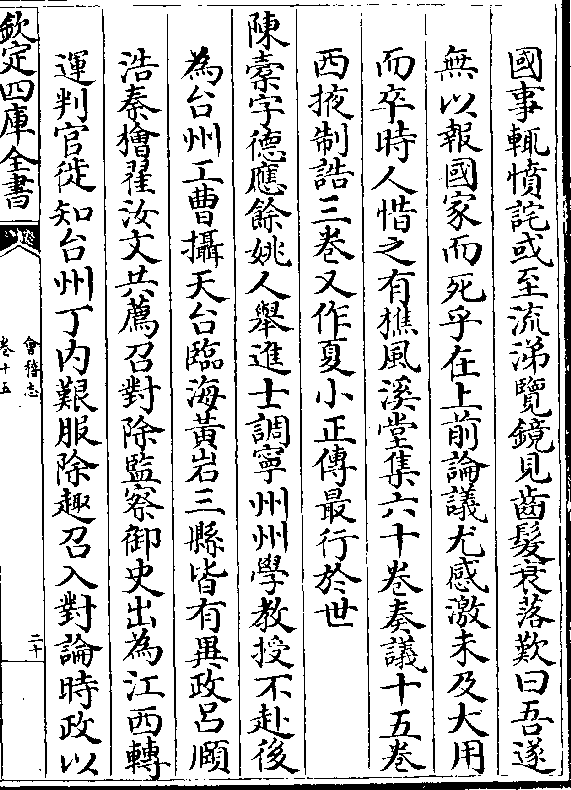 國事輒憤詫或至流涕覽鏡見齒髮衰落歎曰吾遂
無以報國家而死乎在上前論議尤感激未及大用
而卒時人惜之有樵風溪堂集六十卷奏議十五卷
西掖制誥三卷又作夏小正傳最行於世
陳橐字德應餘姚人舉進士調寧州州學教授不赴後
為台州工曹攝天台臨海黃岩三縣皆有異政呂頤
浩秦檜翟汝文共薦召對除監察御史出為江西轉
運判官徙知台州丁內艱服除趣召入對論時政以
欽定四庫全書
會稽志
卷十五
二十